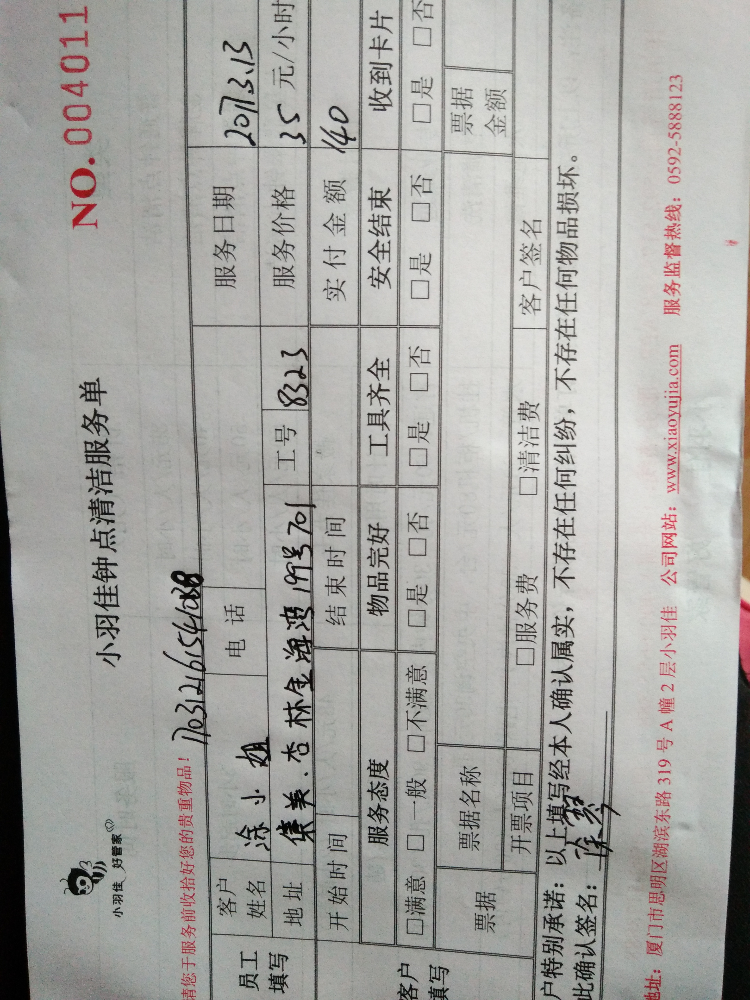 小羽佳 好管家
小羽佳钟点清洁服务单
NO.004011
请您于服务前收拾好您的贵重物品! 170312161541038
员工填写 客户姓名 涂小姐 电话 服务日期 2017.3.13
地址 集美.杏林金海湾199号701 工号 8323 服务价格 35 元/小时
开始时间 结束时间 实付金额 140
客户填写 服务态度 物品完好 工具齐全 安全结束 收到卡片
□满意 □一般 □不满意 □是 □否 □是 □否 □是 □否 □是 □否
票据 票据名称 票据金额
开票项目 □服务费 □清洁费 客户签名
户特别承诺:以上填写经本人确认属实,不存在任何纠纷,不存在任何物品损坏。
此确认签名:
地址:厦门市思明区湖滨东路 319 号 A 幢 2 层小羽佳 公司网站:www.xiaoyujia.com 服务监督热线:0592-5888123